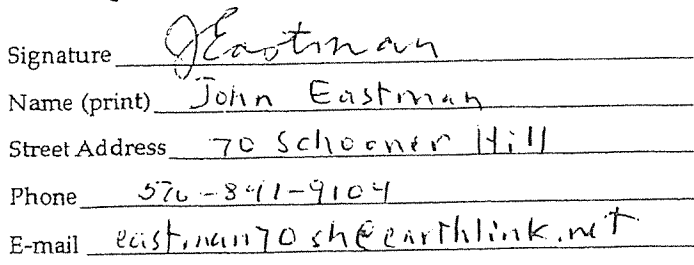 Signature JEastman
Name (print) John Eastman
Street Address 70 Schooner Hill
Phone 570-841-9104
E-mail eastman70sh@earthlink.net